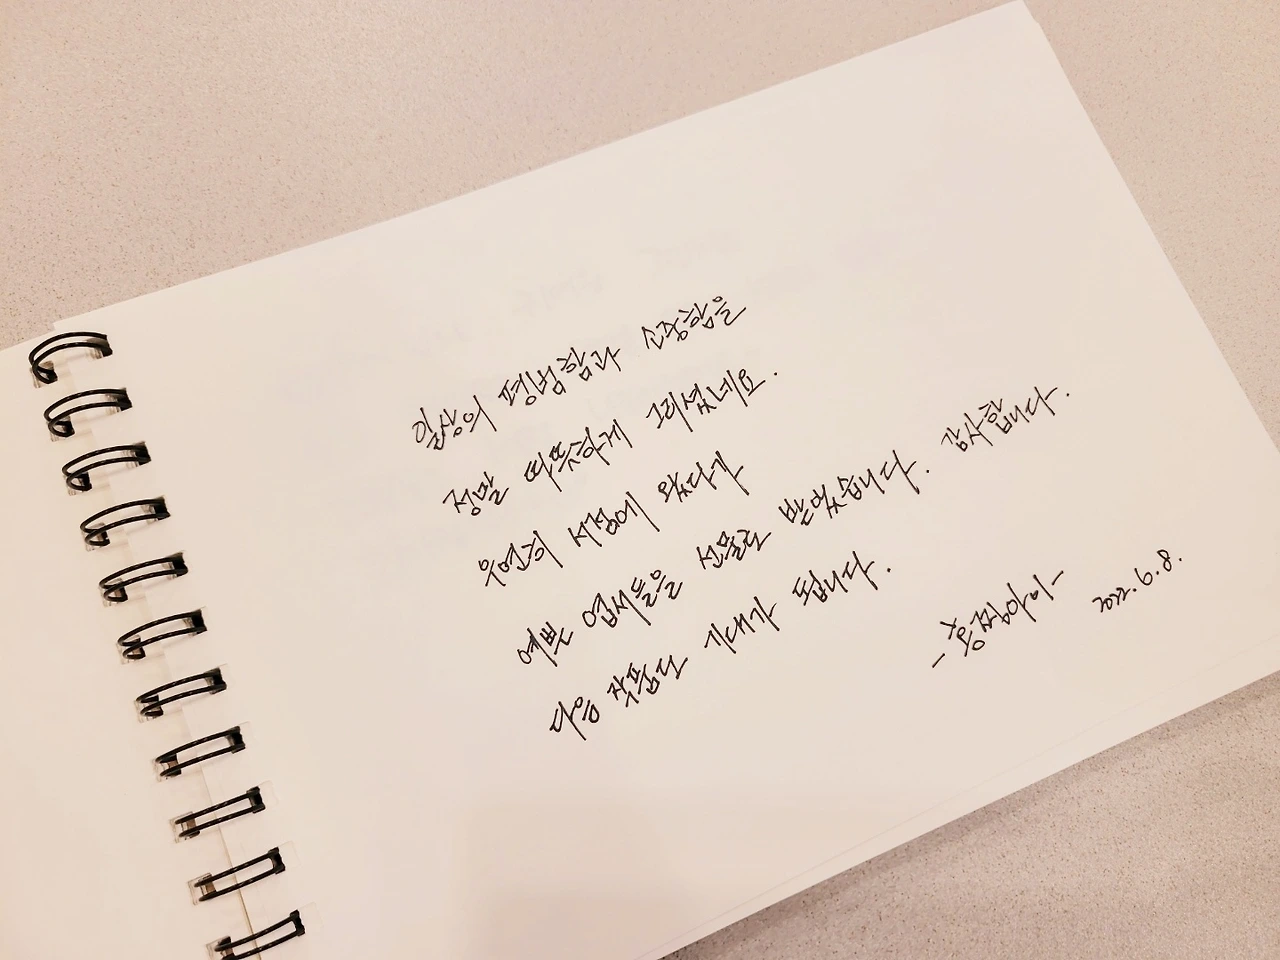 일상의 평범함과 소중함을
정말 따뜻하게 그리셨네요.
우연히 서점에 왔다가
예쁜 엽서들을 선물로 받았습니다. 감사합니다.
다음 작품도 기대가 됩니다.
2022. 6. 8.